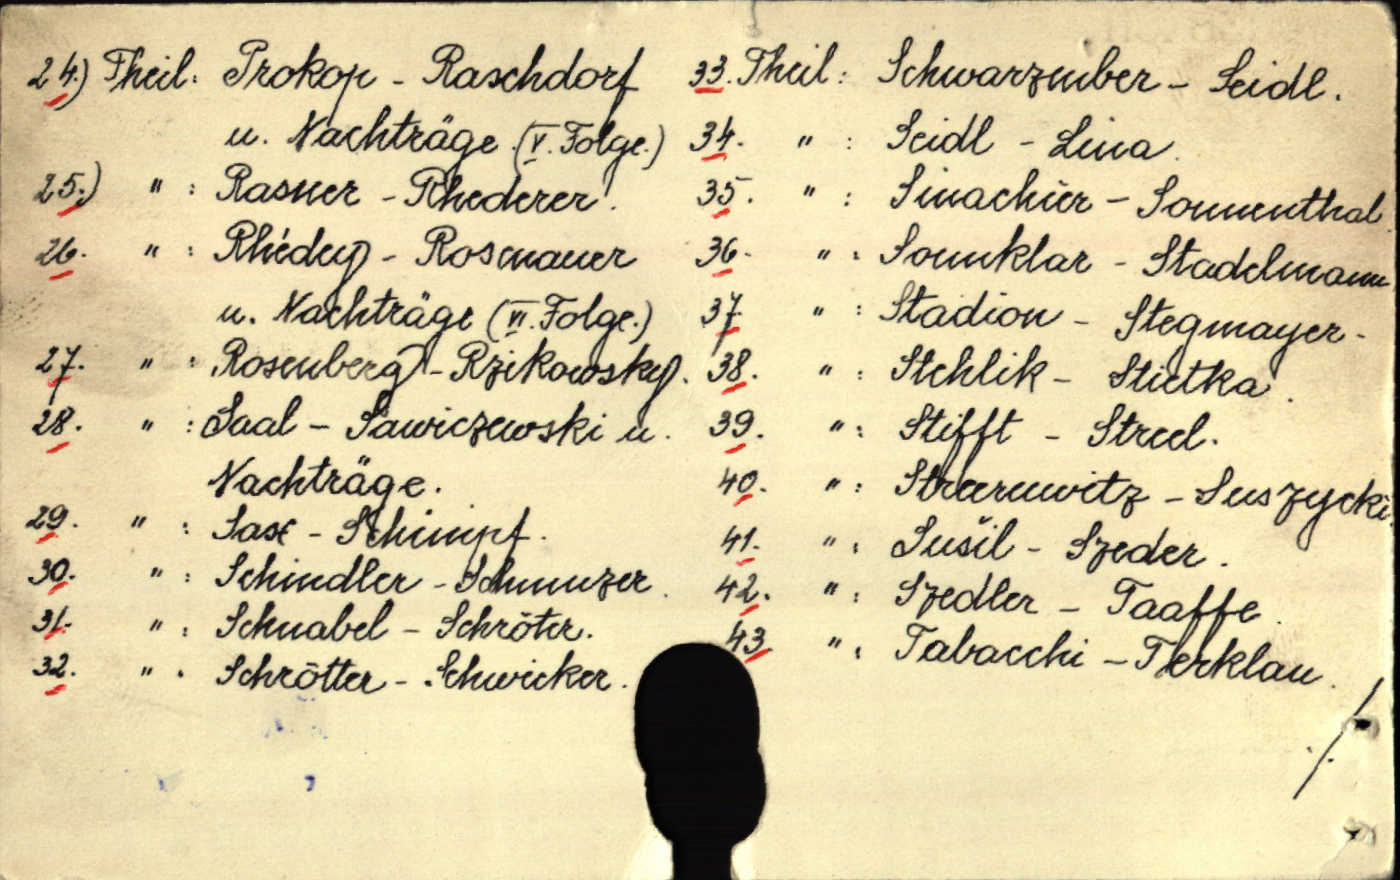 24.) Theil: Prokop - Raschdorf
u. Nachträge (V. Folge.)
25.) " : Rasner - Rhederer.
26. " : Rhédey - Rosenauer
u. Nachträge (VI. Folge.)
27. " : Rosenberg - Rzikowsky.
28. " : Saal - Sawiczewski u.
Nachträge.
29. " : Sax - Schimpf.
30. " : Schindler - Schmuzer.
31. " : Schnabel - Schröter.
32. " . Schrötter - Schwicker.
33. Theil: Schwarzenber - Seidl.
34. " : Seidl - Sina.
35. " : Sinacher - Sonnenthal.
36. " : Sonnklar - Stadelmann
37. " : Stadion - Stegmayer.
38. " : Stehlik - Stietka.
39. " : Stifft - Streel.
40. " : Streeruwitz - Suszycki
41. " : Sušil - Szeder.
42. " : Szedler - Taaffe.
43. " : Tabacchi - Terklau.
./.